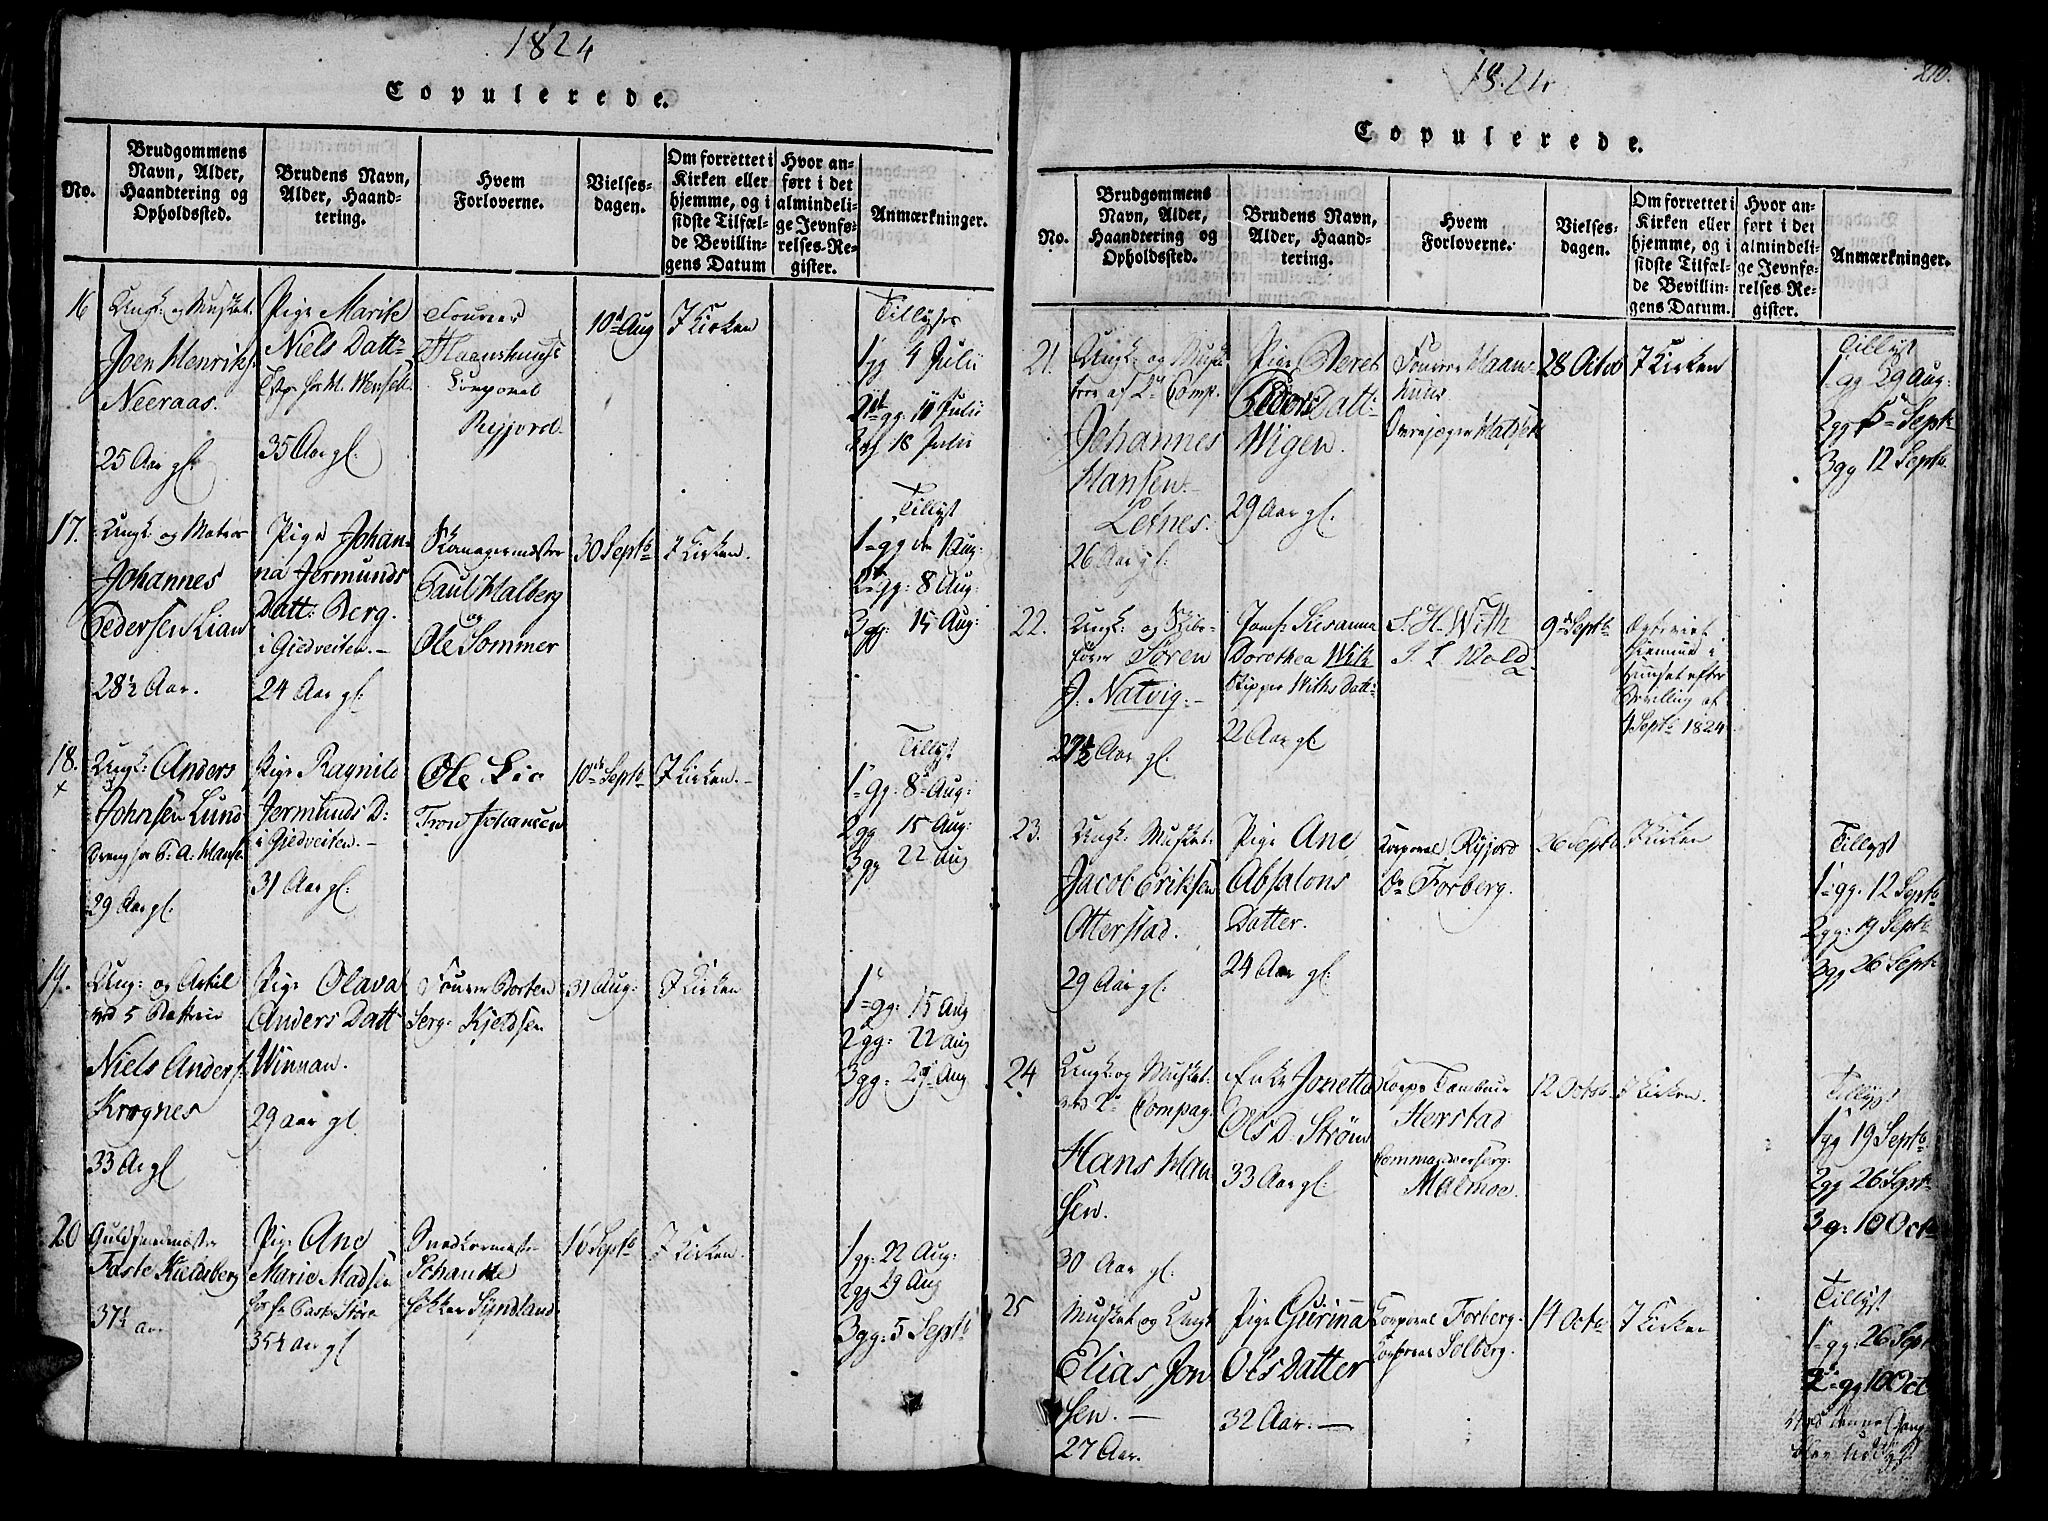 1824
Copulerede.
No.
Brudgommens
Navn, Alder,
Haandtering og
Opholdssted.
Brudens Navn,
Alder, Haand-
tering.
Hvem
Forloverne.
Vielses-
dagen.
Om forrettet i
Kirken eller
hjemme, og i
sidste Tilfæl-
de Bevillin-
gens Datum
Hvor an-
ført i det
almindeli-
ge Jevnfø-
relses-Re-
gister.
Anmærkninger.
16
Ungk: og Musket.
Joen Henriks:
Neeraas.
25 Aar gl:
Pige Marite
Niels Datt:
35 Aar gl.
Fourer
Corporal
Ryjord.
10d Aug
I Kirken
Tillyses
1 gg 4 Julii
2d gg. 11 Julii
3 gg 18 Julii
17.
Ungk: og Matros
Johannes
Pedersen Lian
28½ Aar.
Pige Johan-
na Jermunds
Datt: Berg.
i Giedveiten.-
24 Aar gl.
Paul Malberg
og
Ole Sommer
30 Septb
I Kirken.
Tillyst
1 gg den 1 Aug:
2 gg: 8 Aug:
3 gg: 15 Aug:
18.
Ungk: Anders
Johnsen Lund
Dreng for
29 Aar gl.
Pige Ragnild
Jermunds D:
i Giedveiten.-
31 Aar gl:
Ole Lie
Trond Johansen
10de Septb
I Kirken.-
Tillyst
1 gg: 8 Aug:
2 gg 15 Aug:
3 gg 22 Aug
19.
Ung: og
Niels Anders:
Krognes
33 Ar gl
Pige Olava
Anders Datt
Winnan.
29 aar gl.
Fourer Borten
Serg: Kjeldsen
31 Aug:
I Kirken
1 gg: 15 Aug
2 gg: 22 aug
3 gg: 29 Aug
20
Guldsmedmester
Faste Kieldsberg
37½ aar
Pige Ane
Marie Madsen
35½ Aar gl
Schanke
16 Septb
I Kirken.
1 gg: 22 Aug:
2 gg 29 Aug
3 gg: 5 Septb
1824
210.
Copulerede.
No.
Brudgommens
Navn, Alder,
Haandtering og
Opholdssted.
Brudens Navn,
Alder, Haand-
tering.
Hvem
Forloverne.
Vielses-
dagen.
Om forrettet i
Kirken eller
hjemme, og i
sidste Tilfæl-
de Bevillin-
gens Datum.
Hvor an-
ført i det
almindeli-
ge Jevnfø-
relses Re-
gister.
Anmærkninger.
21.
Ungk: og
Johannes
Hansen.-
Letnes.
26 Aar gl:
Pige Beret
Peders Datt:
Wigen.
29 Aar gl.
Fourer Haan-
28 Octob
I Kirken
Tillyst
1 gg 29 Aug:
2 gg 5 Septb
3 gg 12 Septb.
22.
Ungk: og
Søren
J. Natvig.-
27½ Aar gl.
Jomf: Susanna
Dorothea With
Skipper Withs Datt:
22 Aar gl
S. H. With
9 Septb
hjemme i
Huuset efter
Bevilling af
4 Septb 1824
23.
Ungk: Musket.
Jacob Eriksen
Otterstad.
29 Aar gl.
Pige Ane
Absalons
Datter.
24 Aar gl:
Corporal Ryjord
Do Forberg.
26 Septb
I Kirken
Tillyst
1 gg: 12 Septb
2 gg: 19 Septb
3 gg 26 Septb
24
Ungk: og Musket:
ved Compag.
Hans Han
sen.
30 Aar gl.
Enke Jonetta
Ols D: Strøm
33 Aar gl.
Corps Tambour
Herstad
Commandeersерg:
Malmoe.
12 Octob.
I Kirken.
Tillyst
1 gg 19 Septb
2 gg 26 Septb
3 g: 10 Octb
25
Musket og Ungk
Elias Jon
sen.-
27 Aar.
Pige Gurina
Ols Datter
32 Aar.-
Corporal Forberg.
Corporal Solberg.
14 Octb
I Kirken
Tillyst
1 gg: 26 Sept
2 gg 10 Oct